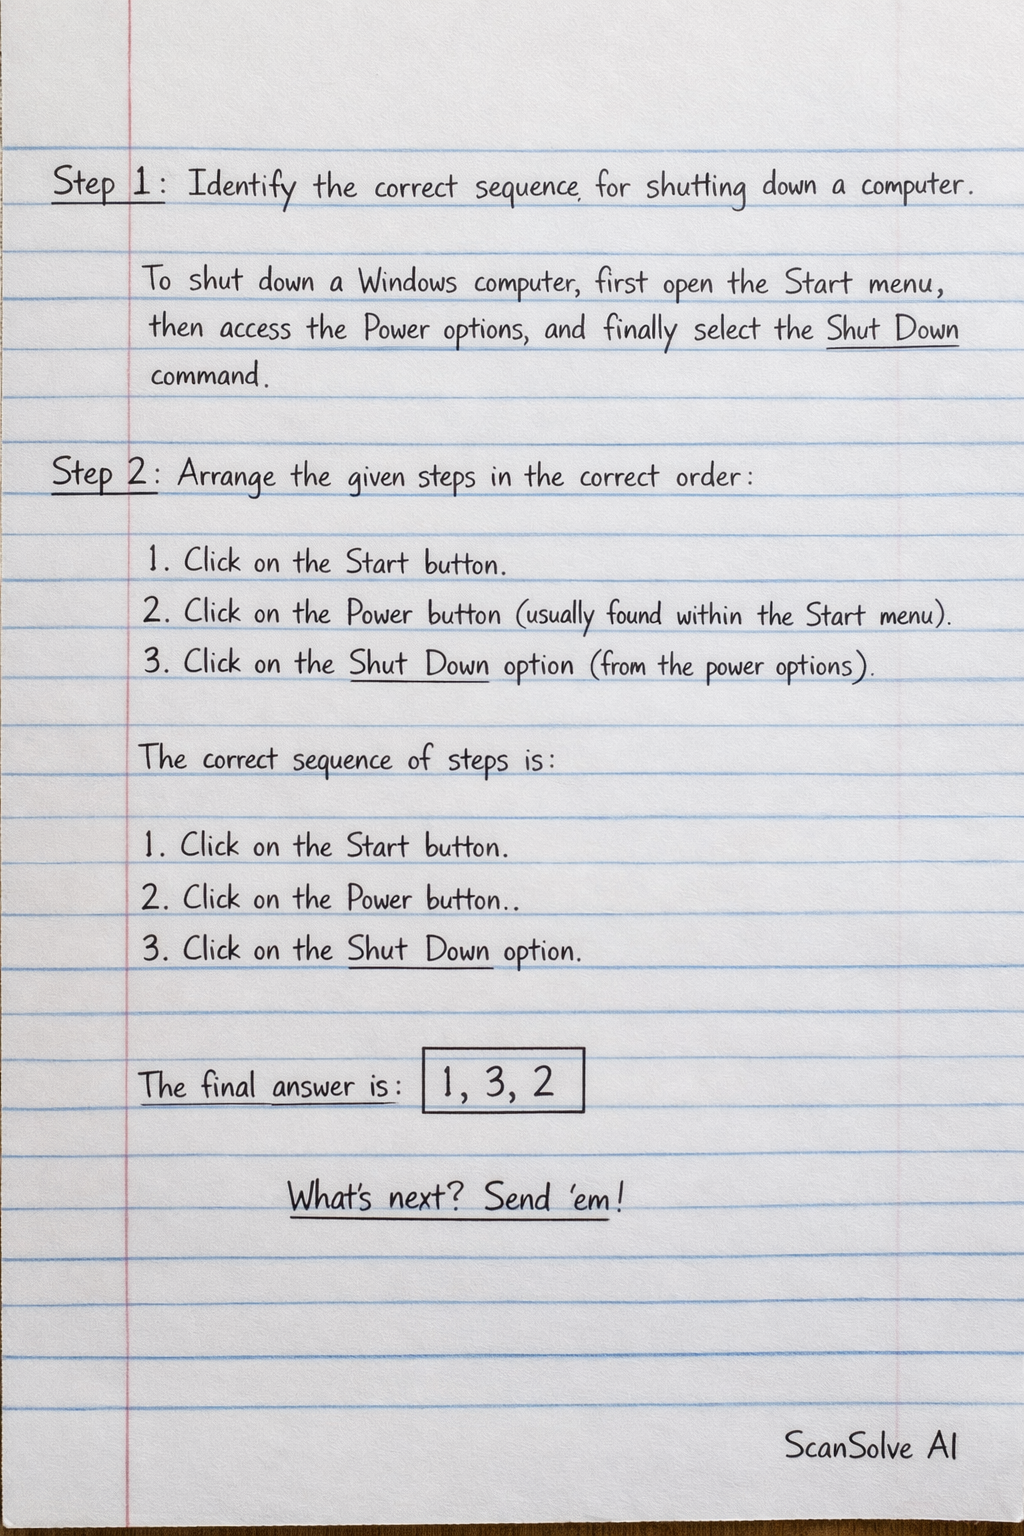 Step 1: Identify the correct sequence, for shutting down a computer.
To shut down a Windows computer, first open the Start menu,
then access the Power options, and finally select the Shut Down
command.
Step 2: Arrange the given steps in the correct order:
1. Click on the Start button.
2. Click on the Power button (usually found within the Start menu).
3. Click on the Shut Down option (from the power options).
The correct sequence of steps is:
1. Click on the Start button.
2. Click on the Power button..
3. Click on the Shut Down option.
The final answer is: 1, 3, 2
What's next? Send 'em!
ScanSolve AI